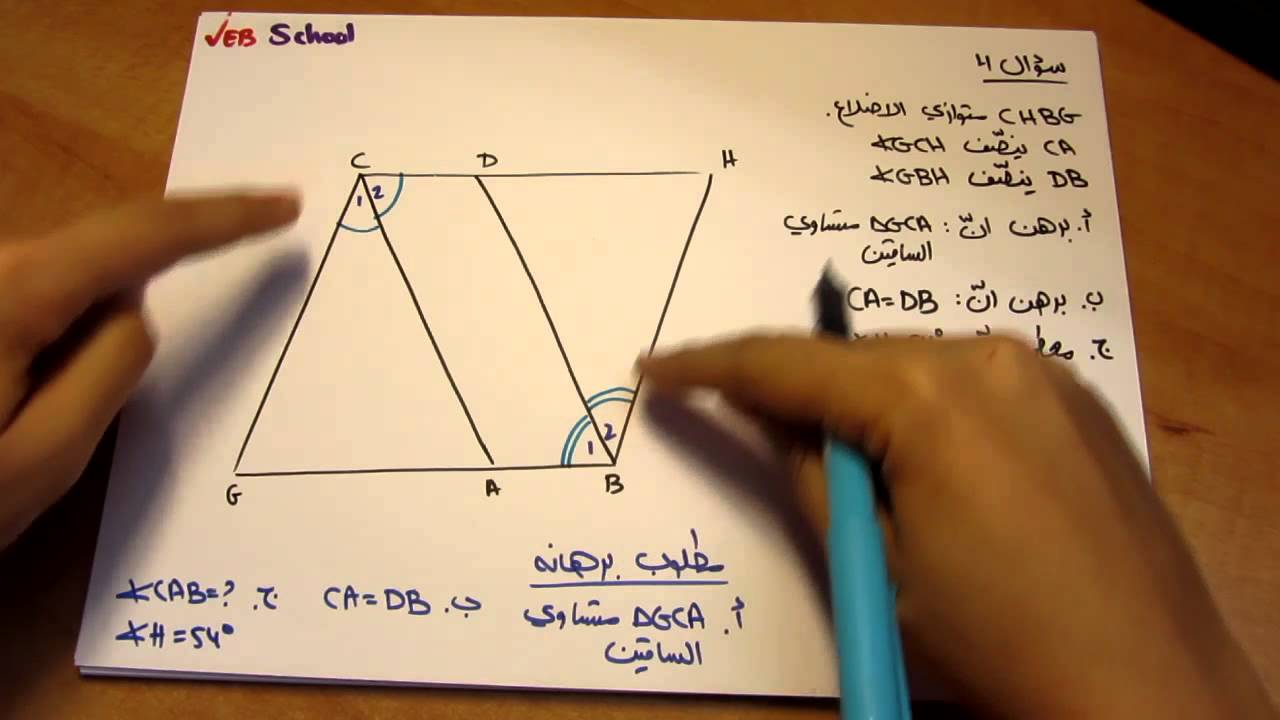 VEB School
سؤال 4
CHBG متوازي الاضلاع.
CA ينصّف ∢GCH
DB ينصّف ∢GBH
أ. برهن انّ: ΔGCA متساوي
الساقين
ب. برهن انّ: CA=DB
ج.
C
D
H
1 2
1 2
G
A
B
مطلوب برهانه
أ. ΔGCA متساوي
الساقين
ب. CA=DB
ج. ∢CAB=?
∢H=54°